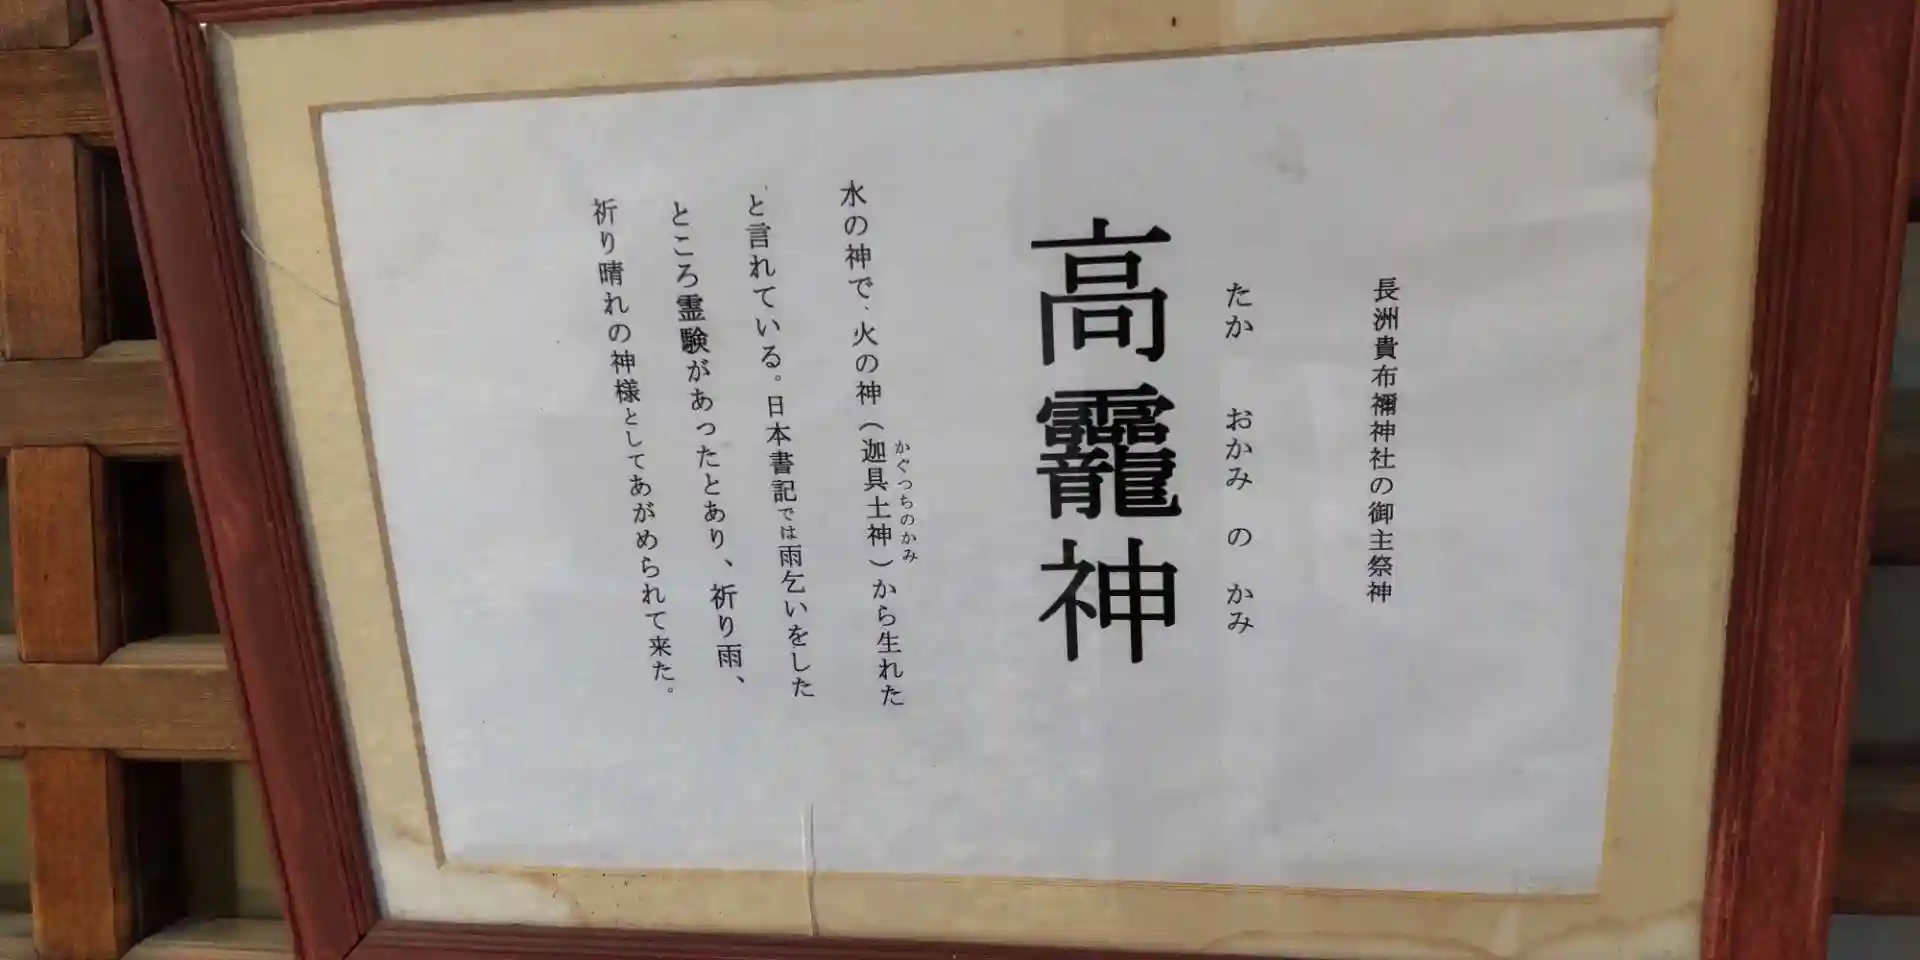 長洲貴布禰神社の御主祭神
たか おかみ の かみ
高龗神
水の神で、火の神（迦具土神）から生れた
かぐつちのかみ
と言れている。日本書記では雨乞いをした
ところ霊験があったとあり、祈り雨、
祈り晴れの神様としてあがめられて来た。